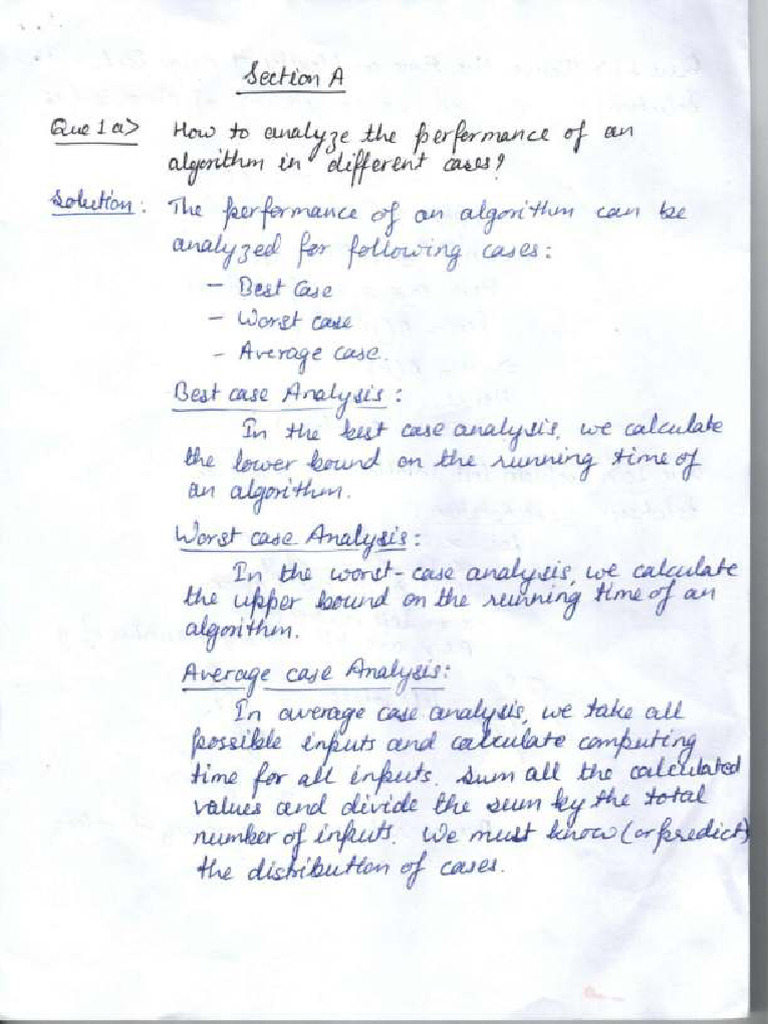 Section A
Que 1 a> How to analyze the performance of an
algorithm in different cases?
Solution: The performance of an algorithm can be
analyzed for following cases:
- Best Case
- Worst case
- Average case.
Best case Analysis:
In the best case analysis, we calculate
the lower bound on the running time of
an algorithm.
Worst case Analysis:
In the worst-case analysis, we calculate
the upper bound on the running time of an
algorithm.
Average case Analysis:
In average case analysis, we take all
possible inputs and calculate computing
time for all inputs. Sum all the calculated
values and divide the sum by the total
number of inputs. We must know (or predict)
the distribution of cases.